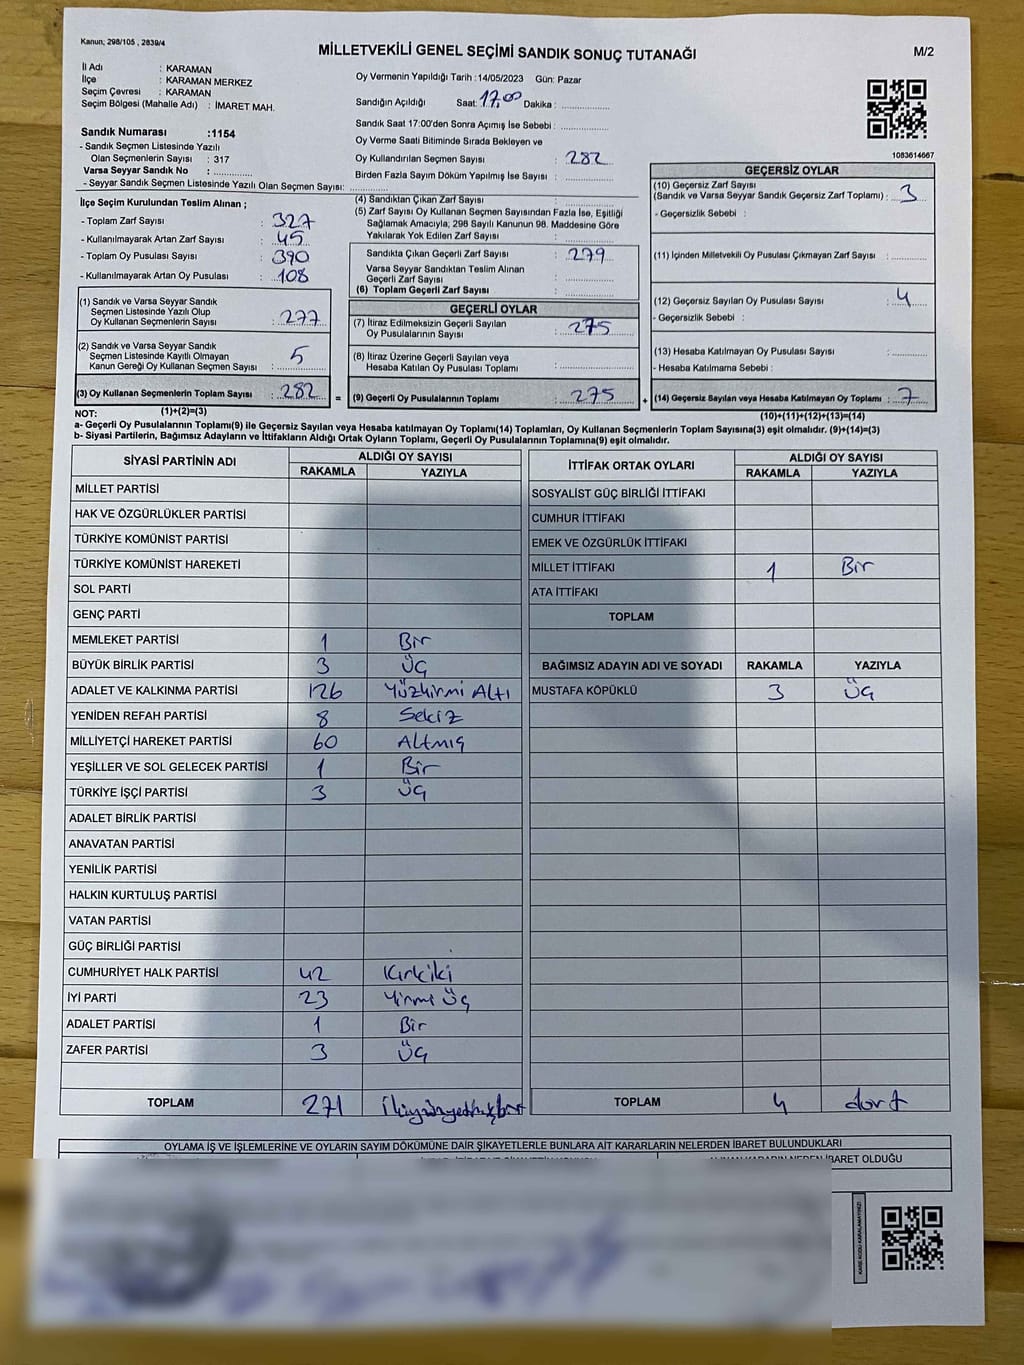 Kanun; 298/105 , 2839/4
MİLLETVEKİLİ GENEL SEÇİMİ SANDIK SONUÇ TUTANAĞI
M/2
İl Adı : KARAMAN
İlçe : KARAMAN MERKEZ
Seçim Çevresi : KARAMAN
Seçim Bölgesi (Mahalle Adı) : İMARET MAH.
Sandık Numarası :1154
- Sandık Seçmen Listesinde Yazılı
Olan Seçmenlerin Sayısı : 317
Varsa Seyyar Sandık No : ...............
- Seyyar Sandık Seçmen Listesinde Yazılı Olan Seçmen Sayısı: ...............
Oy Vermenin Yapıldığı Tarih :14/05/2023 Gün: Pazar
Sandığın Açıldığı Saat: 17,00 Dakika : ...............
Sandık Saat 17:00'den Sonra Açımış İse Sebebi : ...............
Oy Verme Saati Bitiminde Sırada Bekleyen ve
Oy Kullandırılan Seçmen Sayısı : 282
Birden Fazla Sayım Döküm Yapılmış İse Sayısı : ...............
1083614667
İlçe Seçim Kurulundan Teslim Alınan ;
- Toplam Zarf Sayısı : 327
- Kullanılmayarak Artan Zarf Sayısı : 45
- Toplam Oy Pusulası Sayısı : 390
- Kullanılmayarak Artan Oy Pusulası : 108
(1) Sandık ve Varsa Seyyar Sandık
Seçmen Listesinde Yazılı Olup
Oy Kullanan Seçmenlerin Sayısı : 277
(2) Sandık ve Varsa Seyyar Sandık
Seçmen Listesinde Kayıtlı Olmayan
Kanun Gereği Oy Kullanan Seçmen Sayısı : 5
(3) Oy Kullanan Seçmenlerin Toplam Sayısı : 282 =
(1)+(2)=(3)
(4) Sandıktan Çıkan Zarf Sayısı : ...............
(5) Zarf Sayısı Oy Kullanan Seçmen Sayısından Fazla İse, Eşitliği
Sağlamak Amacıyla, 298 Sayılı Kanunun 98. Maddesine Göre
Yakılarak Yok Edilen Zarf Sayısı : ...............
Sandıkta Çıkan Geçerli Zarf Sayısı : 279
Varsa Seyyar Sandıktan Teslim Alınan
Geçerli Zarf Sayısı : ...............
(6) Toplam Geçerli Zarf Sayısı : ...............
GEÇERLİ OYLAR
(7) İtiraz Edilmeksizin Geçerli Sayılan
Oy Pusulalarının Sayısı : 275
(8) İtiraz Üzerine Geçerli Sayılan veya
Hesaba Katılan Oy Pusulası Toplamı : ...............
(9) Geçerli Oy Pusulalarının Toplamı : 275 +
GEÇERSİZ OYLAR
(10) Geçersiz Zarf Sayısı
(Sandık ve Varsa Seyyar Sandık Geçersiz Zarf Toplamı) : 3
- Geçersizlik Sebebi :
(11) İçinden Milletvekili Oy Pusulası Çıkmayan Zarf Sayısı : ...............
(12) Geçersiz Sayılan Oy Pusulası Sayısı : 4
- Geçersizlik Sebebi :
(13) Hesaba Katılmayan Oy Pusulası Sayısı : ...............
- Hesaba Katılmama Sebebi :
(14) Geçersiz Sayılan veya Hesaba Katılmayan Oy Toplamı : 7
(10)+(11)+(12)+(13)=(14)
NOT:
a- Geçerli Oy Pusulalarının Toplamı(9) ile Geçersiz Sayılan veya Hesaba katılmayan Oy Toplamı(14) Toplamları, Oy Kullanan Seçmenlerin Toplam Sayısına(3) eşit olmalıdır. (9)+(14)=(3)
b- Siyasi Partilerin, Bağımsız Adayların ve İttifakların Aldığı Ortak Oyların Toplamı, Geçerli Oy Pusulalarının Toplamına(9) eşit olmalıdır.
SİYASİ PARTİNİN ADI
ALDIĞI OY SAYISI
RAKAMLA YAZIYLA
MİLLET PARTİSİ
HAK VE ÖZGÜRLÜKLER PARTİSİ
TÜRKİYE KOMÜNİST PARTİSİ
TÜRKİYE KOMÜNİST HAREKETİ
SOL PARTİ
GENÇ PARTİ
MEMLEKET PARTİSİ 1 Bir
BÜYÜK BİRLİK PARTİSİ 3 Üç
ADALET VE KALKINMA PARTİSİ 126 Yüzyirmi Altı
YENİDEN REFAH PARTİSİ 8 Sekiz
MİLLİYETÇİ HAREKET PARTİSİ 60 Altmış
YEŞİLLER VE SOL GELECEK PARTİSİ 1 Bir
TÜRKİYE İŞÇİ PARTİSİ 3 Üç
ADALET BİRLİK PARTİSİ
ANAVATAN PARTİSİ
YENİLİK PARTİSİ
HALKIN KURTULUŞ PARTİSİ
VATAN PARTİSİ
GÜÇ BİRLİĞİ PARTİSİ
CUMHURİYET HALK PARTİSİ 42 Kırkiki
İYİ PARTİ 23 Yirmi Üç
ADALET PARTİSİ 1 Bir
ZAFER PARTİSİ 3 Üç
TOPLAM 271 İkiyüzyetmişbir
İTTİFAK ORTAK OYLARI
ALDIĞI OY SAYISI
RAKAMLA YAZIYLA
SOSYALİST GÜÇ BİRLİĞİ İTTİFAKI
CUMHUR İTTİFAKI
EMEK VE ÖZGÜRLÜK İTTİFAKI
MİLLET İTTİFAKI 1 Bir
ATA İTTİFAKI
TOPLAM
BAĞIMSIZ ADAYIN ADI VE SOYADI RAKAMLA YAZIYLA
MUSTAFA KÖPÜKLÜ 3 Üç
TOPLAM 4 dört
OYLAMA İŞ VE İŞLEMLERİNE VE OYLARIN SAYIM DÖKÜMÜNE DAİR ŞİKAYETLERLE BUNLARA AİT KARARLARIN NELERDEN İBARET BULUNDUKLARI
ALINAN KARARIN NEDEN İBARET OLDUĞU
KARE KODU KARALAMAYINIZ!